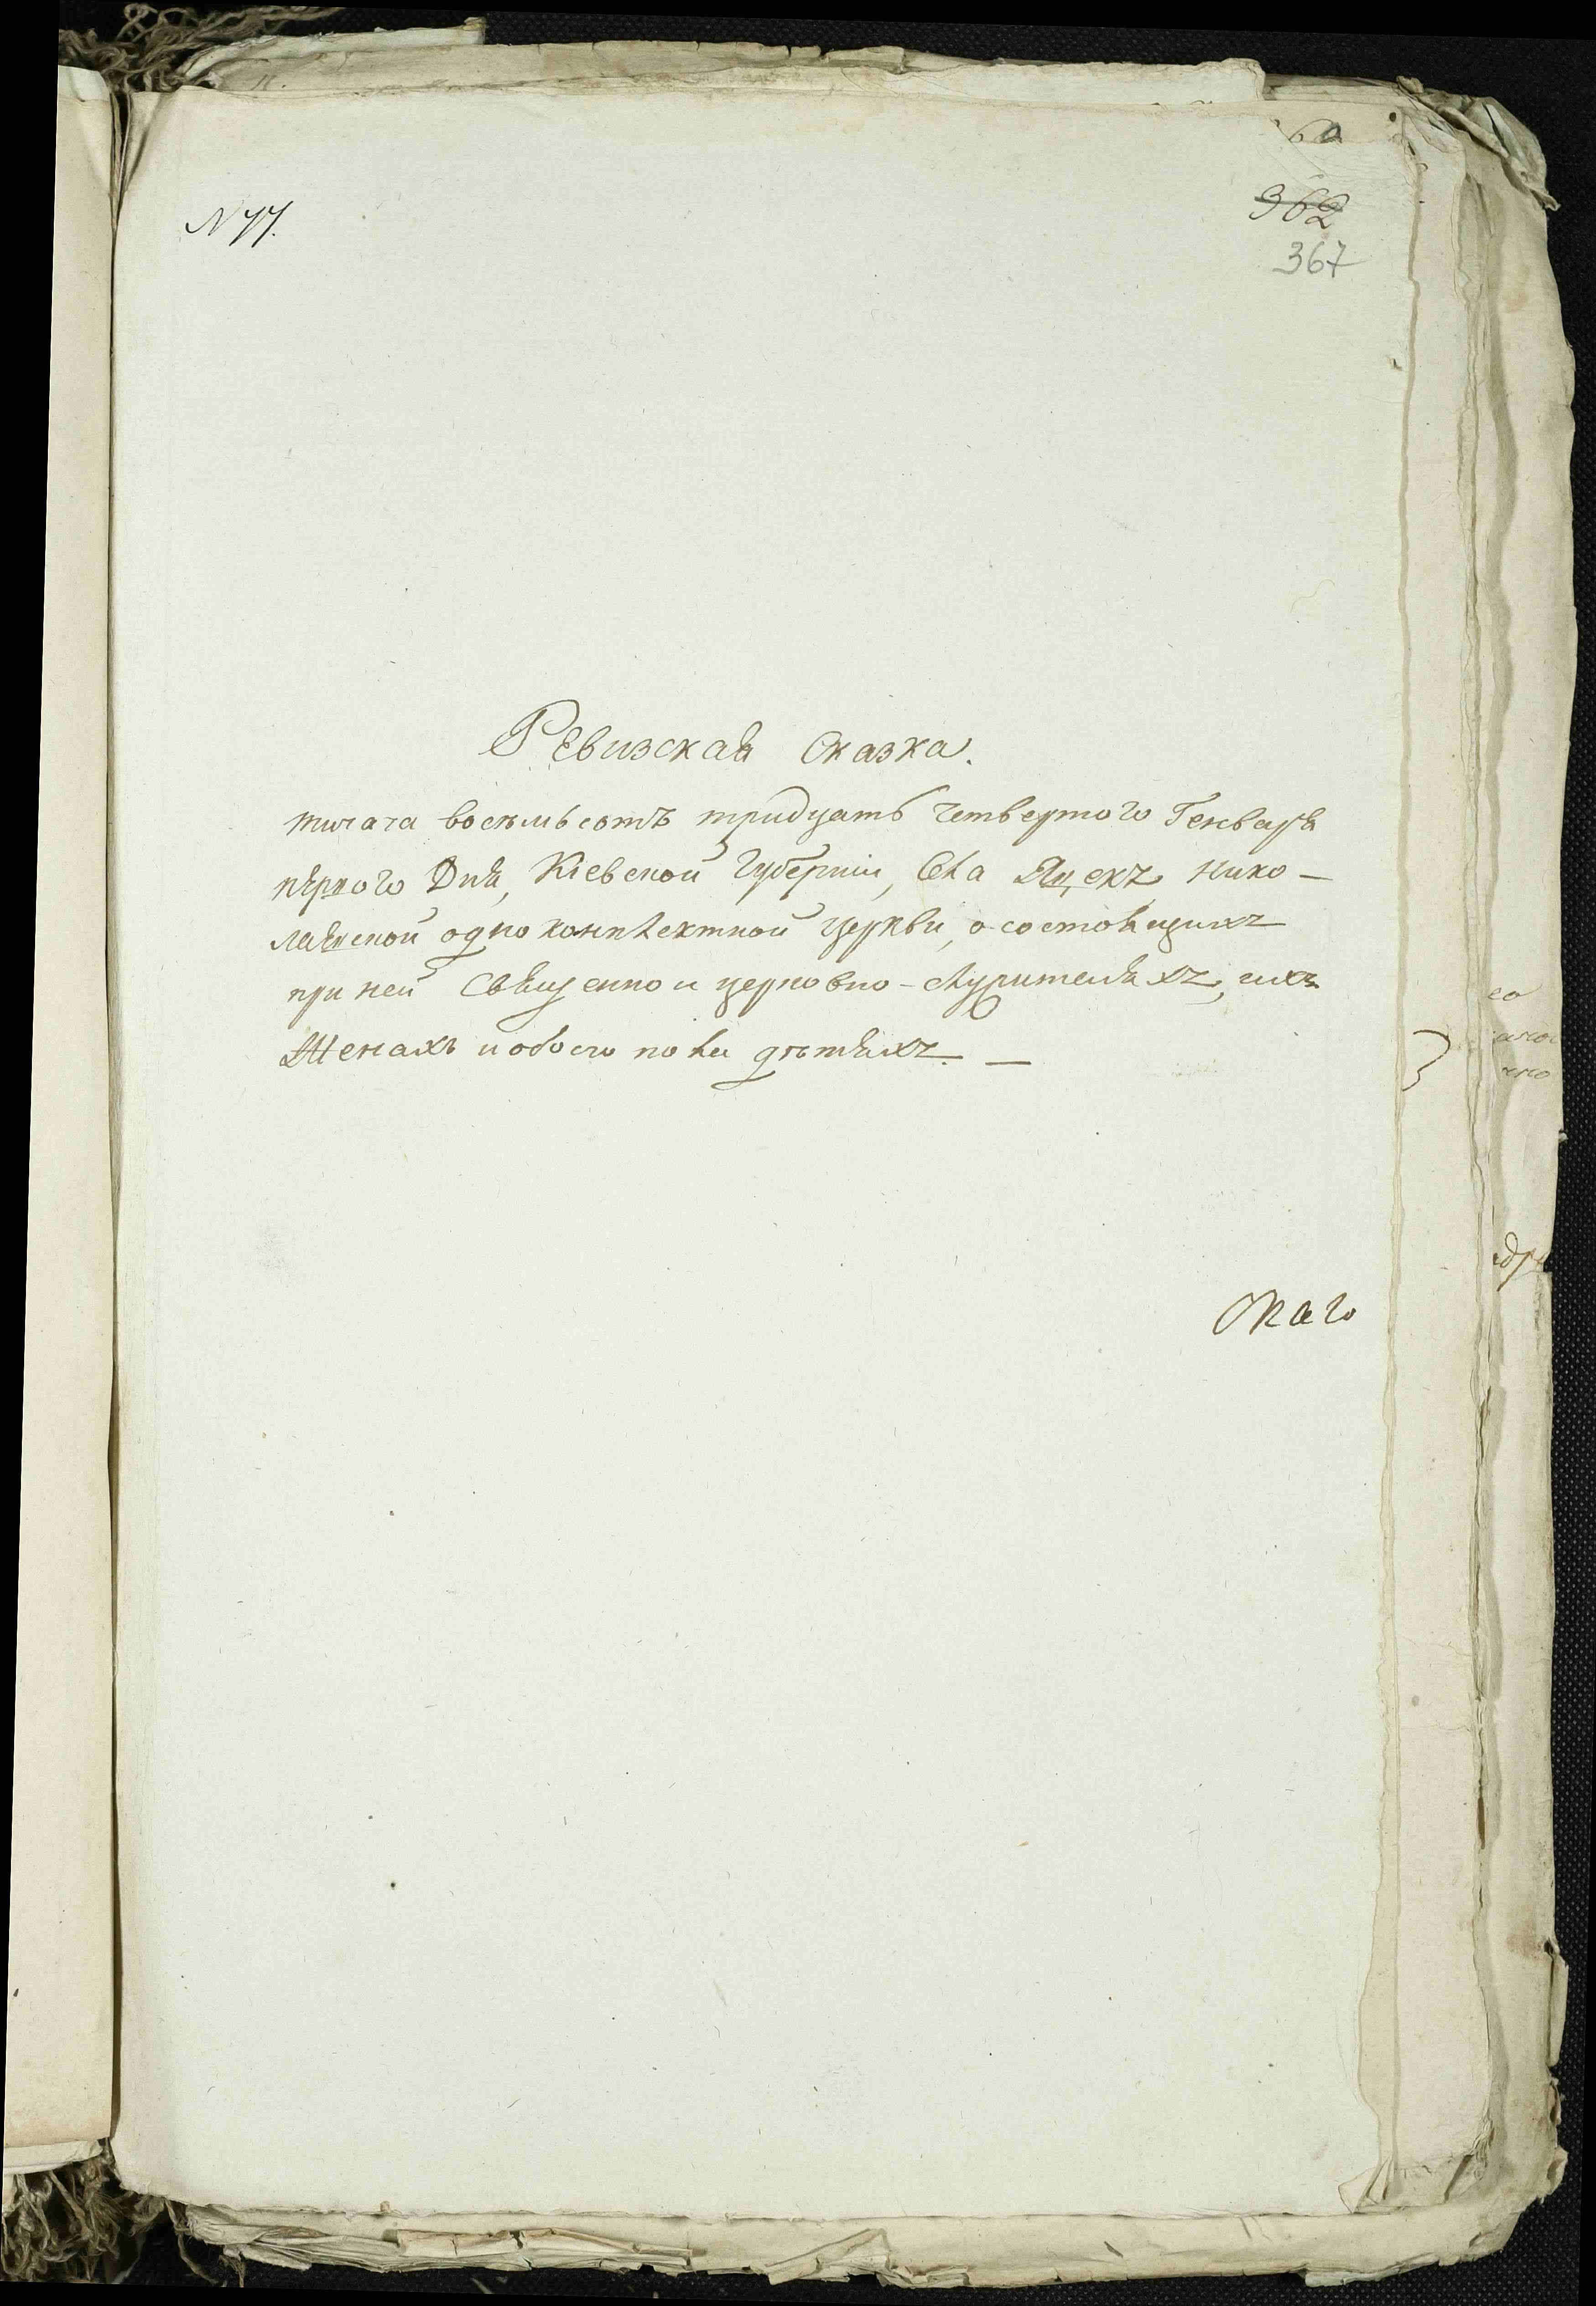 N 77.
362
367
Ревизская Сказка.
тисяча восѣмьсотъ тридцать четвертого Генваря
первого Дня, Кіевской Губерніи, Села Яцекъ Нико-
лаевской однокомплектной церкви, о состоящихъ
при ней Священно и церковно-служителяхъ, ихъ
Женахъ и обоего пола дѣтяхъ. —